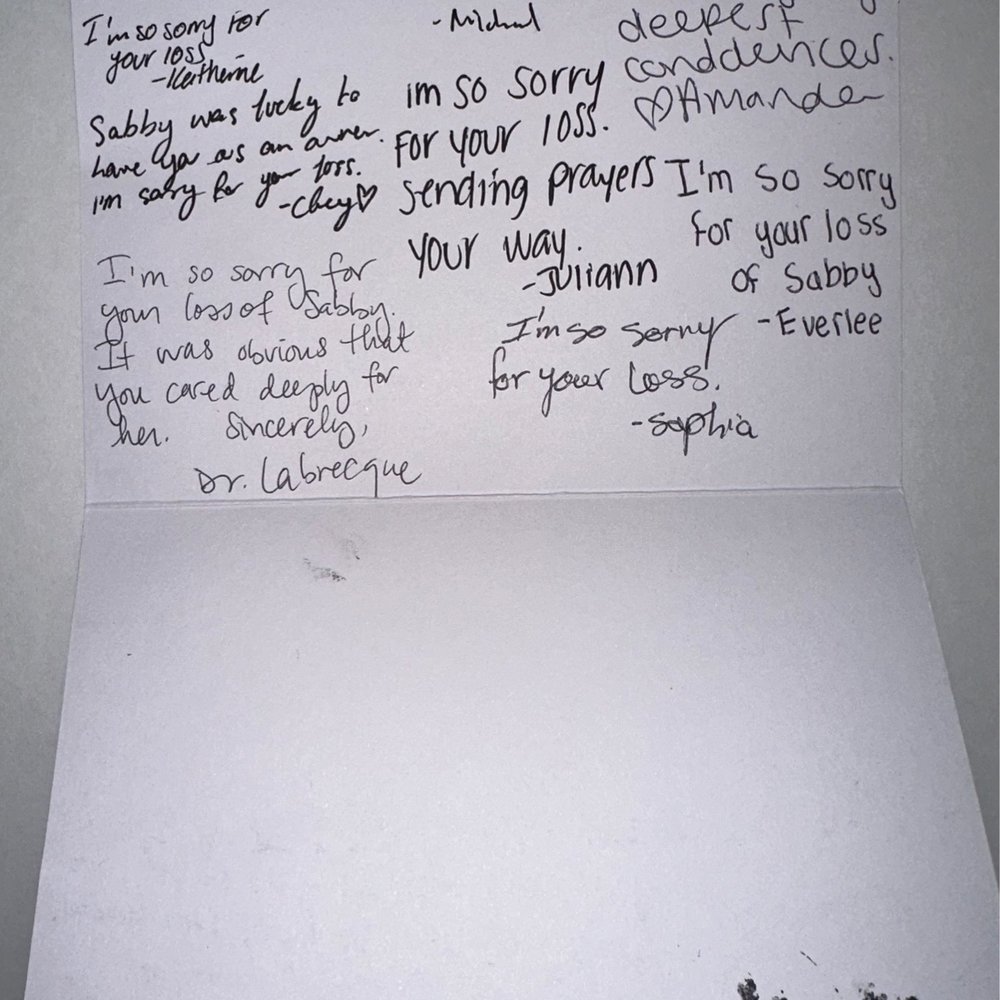 I'm so sorry for
your loss
-Katherine
Sabby was lucky to
have you as an owner.
I'm sorry for your loss.
-Chey♡
I'm so sorry for
your loss of Sabby.
It was obvious that
you cared deeply for
her. Sincerely,
Dr. Labrecque
-Michael
im so sorry
for your loss.
sending prayers
your way.
-Juliann
I'm so sorry
for your loss.
-Sophia
deepest
conddences.
♡Amanda
I'm so sorry
for your loss
of Sabby
-Everlee